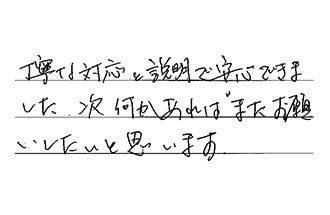 丁寧な対応と説明で安心できま
した．次何かあれば“またお願
いしたいと思います．